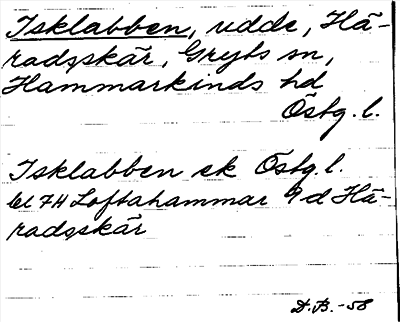 Isklabben, udde, Hä-
radsskär, Gryts sn,
Hammarkinds hd
Östg. l.
Isklabben ek Östg. l.
bl 74 Loftahammar 9 d Hä-
radsskär
D.B. -58